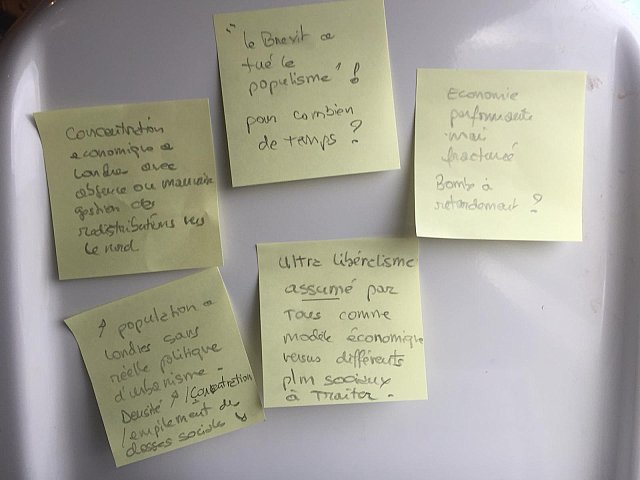 "le Brexit a
tué le
populisme" !
pour combien
de temps ?
Economie
performante
mai
fracturée
Bombe à
retardement ?
Concentration
economique a
Londres avec
absence ou mauvaise
gestion des
redistributions vers
le nord
↗ population a
Londres sans
réelle politique
d'urbanisme -
Densité ↗ / Concentration
/ empilement de
classes sociales ↘
Ultra libéralisme
assumé par
Tous comme
modèle économique
versus différents
pbm sociaux
à Traiter -